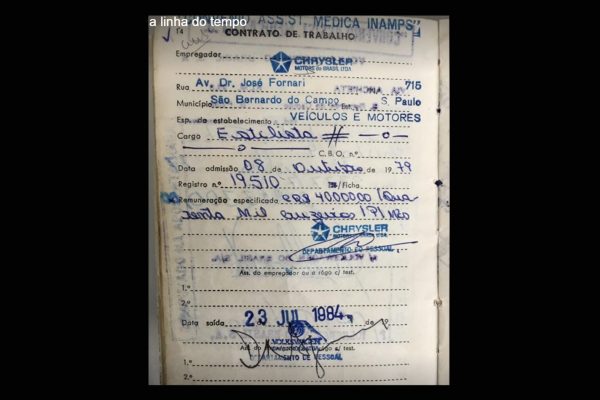 a linha do tempo
ASSIST. MEDICA INAMPS"
14
CONTRATO DE TRABALHO
Empregador
CHRYSLER
MOTORS do BRASIL LTDA.
Rua Av. Dr. José Fornari 715
Município São Bernardo do Campo S. Paulo
Esp. do estabelecimento VEÍCULOS E MOTORES
Cargo Estilista #
C.B.O. n.º
Data admissão 08 de outubro de 1979
Registro n.º 19.510 /Ficha
Remuneração especificada 4000000 (Qua
renta Mil cruzeiros) P/ mês
CHRYSLER
MOTORS do BRASIL LTDA.
DEPARTAMENTO DO PESSOAL
Ass. do empregador ou a rôgo c/ test.
1.º
2.º
Data saída 23 JUL 1984 de 19
VOLKSWAGEN
DEPARTAMENTO DE PESSOAL
Ass. do empregador ou a rôgo c/ test.
1.º
2.º